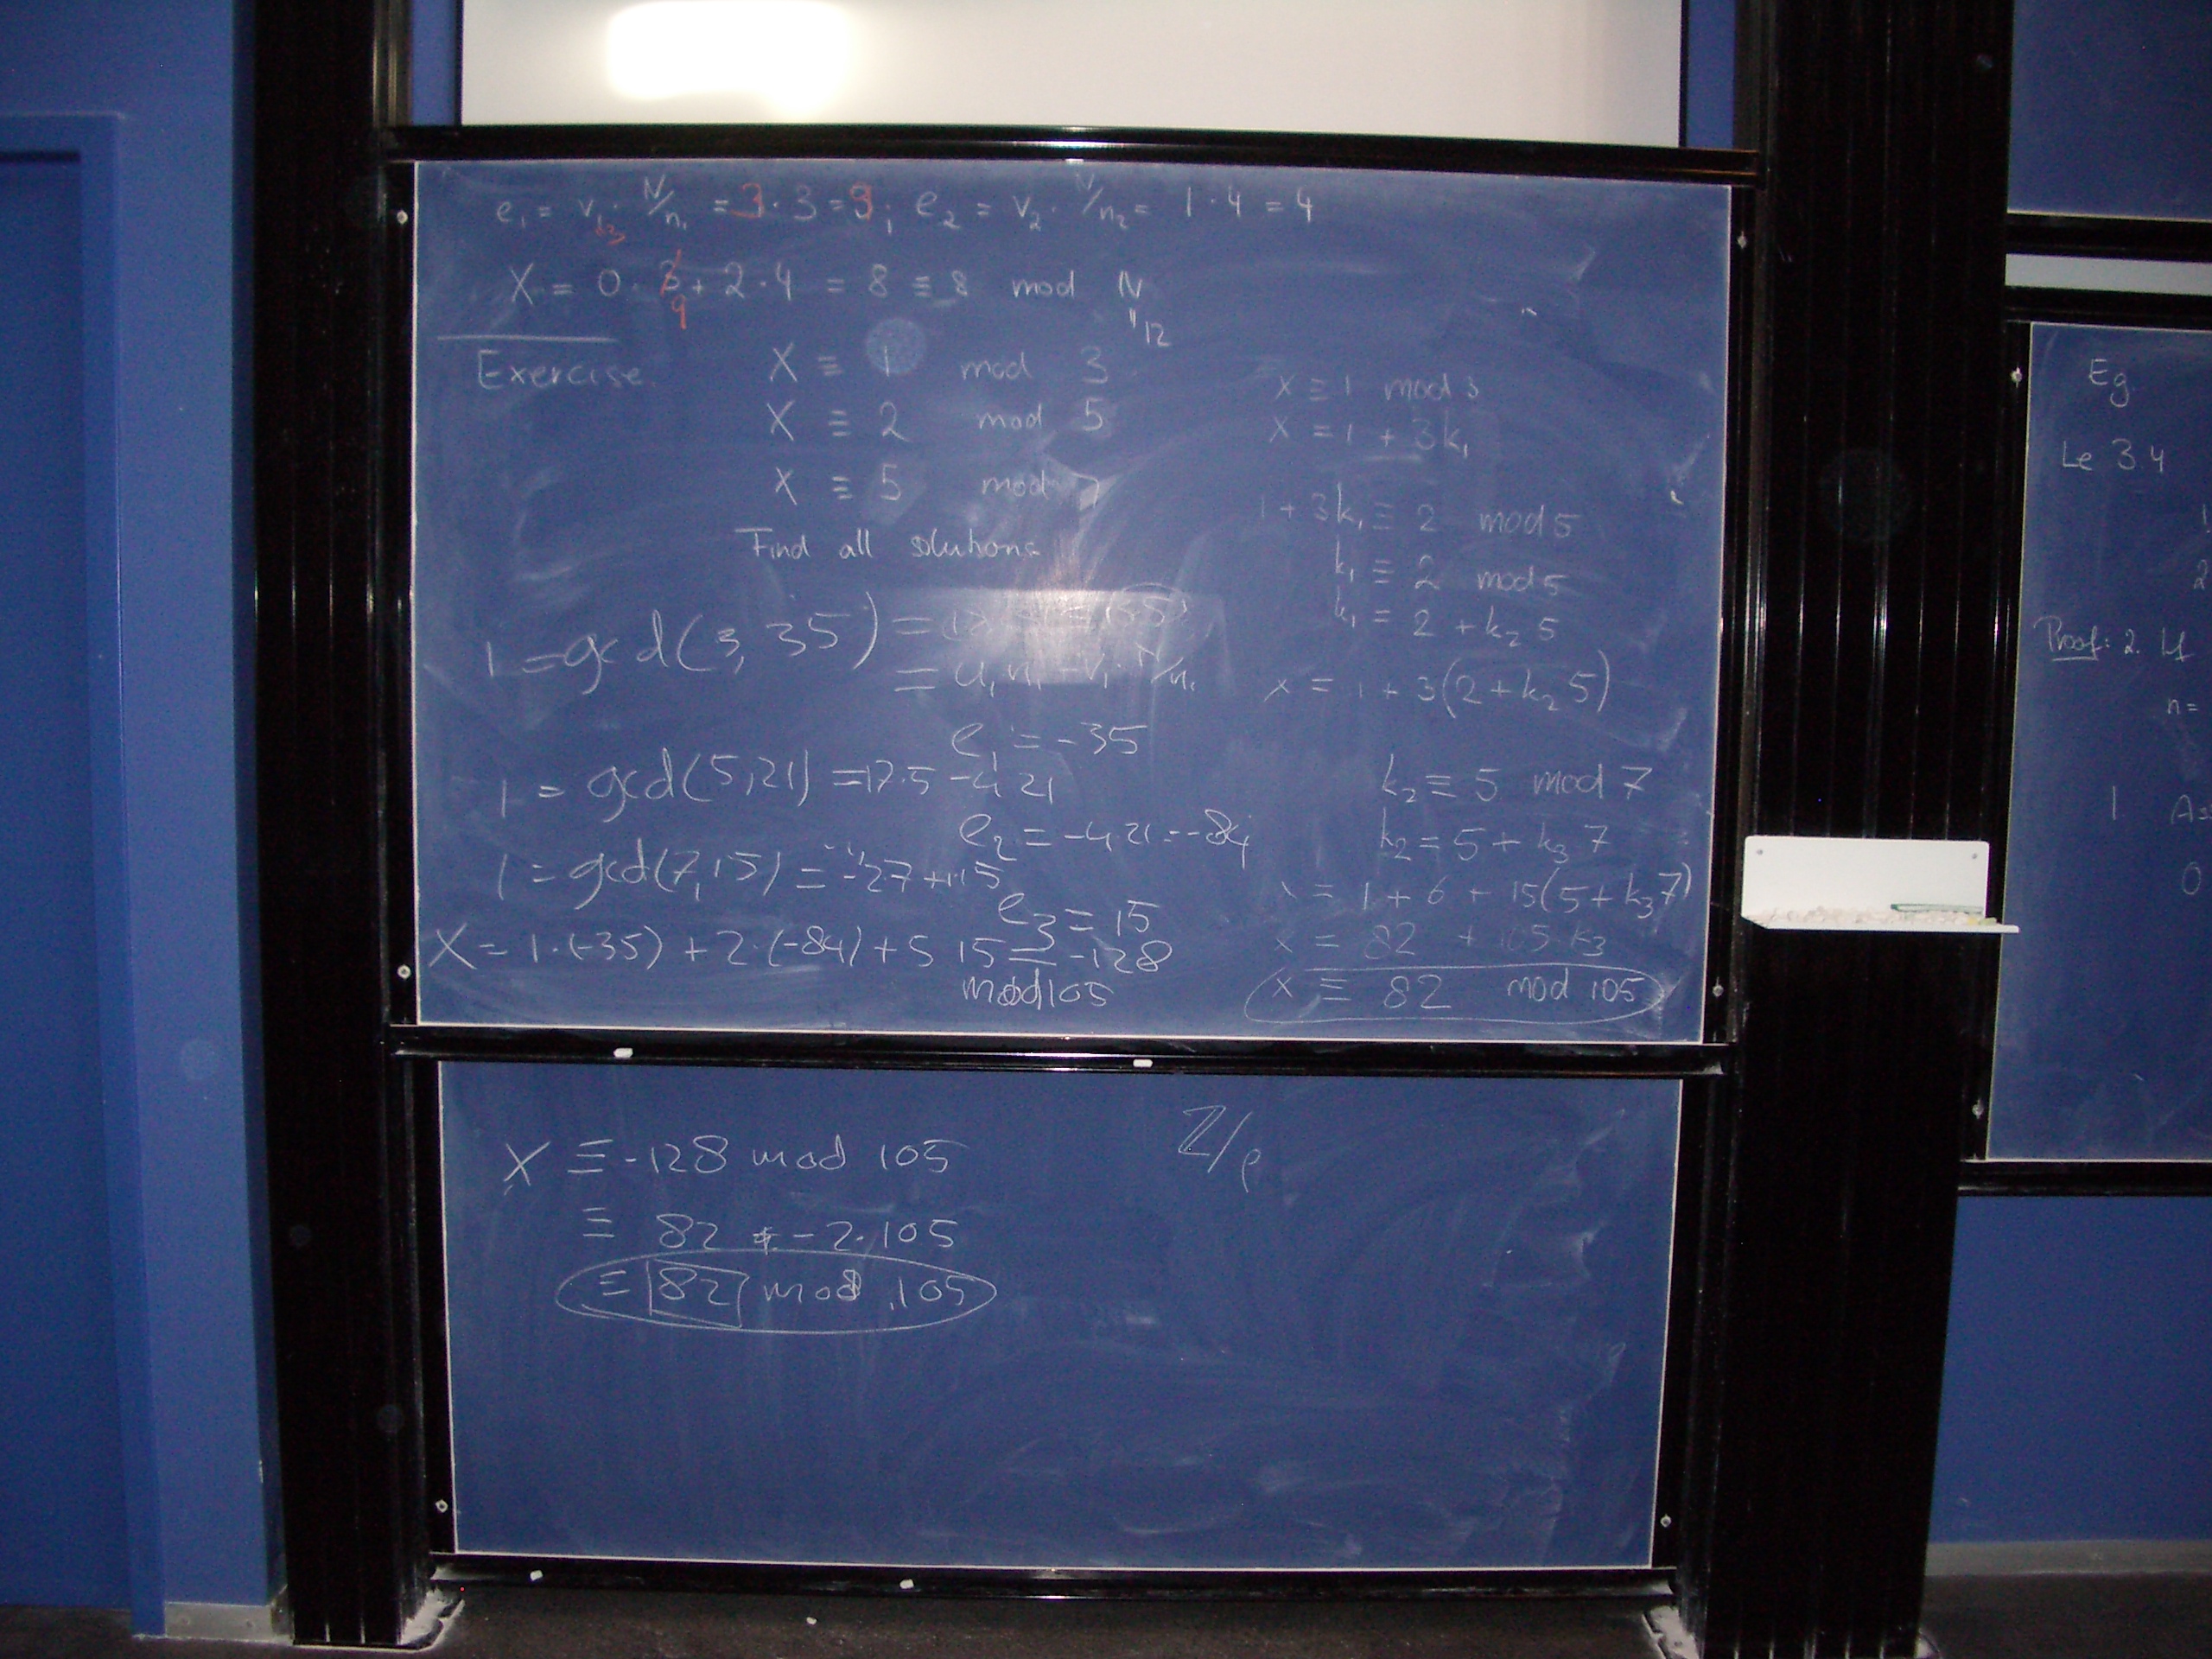 e₁ = v₁ · N/n₁ = 3 · 3 = 9 ; e₂ = v₂ · N/n₂ = 1 · 4 = 4
X = 0 · 3 + 2 · 4 = 8 ≡ 8 mod N
9
" 12
Exercise.
X ≡ 1 mod 3
X ≡ 2 mod 5
X ≡ 5 mod 7
Find all solutions
1 = gcd(3, 35) =
= u₁n₁ + v₁ · N/n₁
e₁ = -35
1 = gcd(5,21) = 17·5 -4 21
e₂ = -4·21 = -84
1 = gcd(7,15) = -2·7 + 1·15
e₃ = 15
X = 1·(-35) + 2·(-84) + 5 15 = -128
mod 105
x ≡ 1 mod 3
x = 1 + 3k₁
1 + 3k₁ ≡ 2 mod 5
k₁ ≡ 2 mod 5
k₁ = 2 + k₂ 5
x = 1 + 3(2 + k₂ 5)
k₂ ≡ 5 mod 7
k₂ = 5 + k₃ 7
x = 1 + 6 + 15(5 + k₃ 7)
x = 82 + 105 k₃
x ≡ 82 mod 105
X ≡ -128 mod 105
≡ 82 + -2·105
≡ 82 mod 105
ℤ/p
Eg.
Le 3.4
Proof: 2. If
n =
1 A=
0